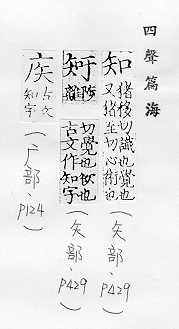 四聲篇海
知
猪移切識也覺也
又猪至切心術也
（矢部、p429）
陟離
切覺也欲也
古文作知字
（矢部、p429）
古文
知字
（厂部、p124）